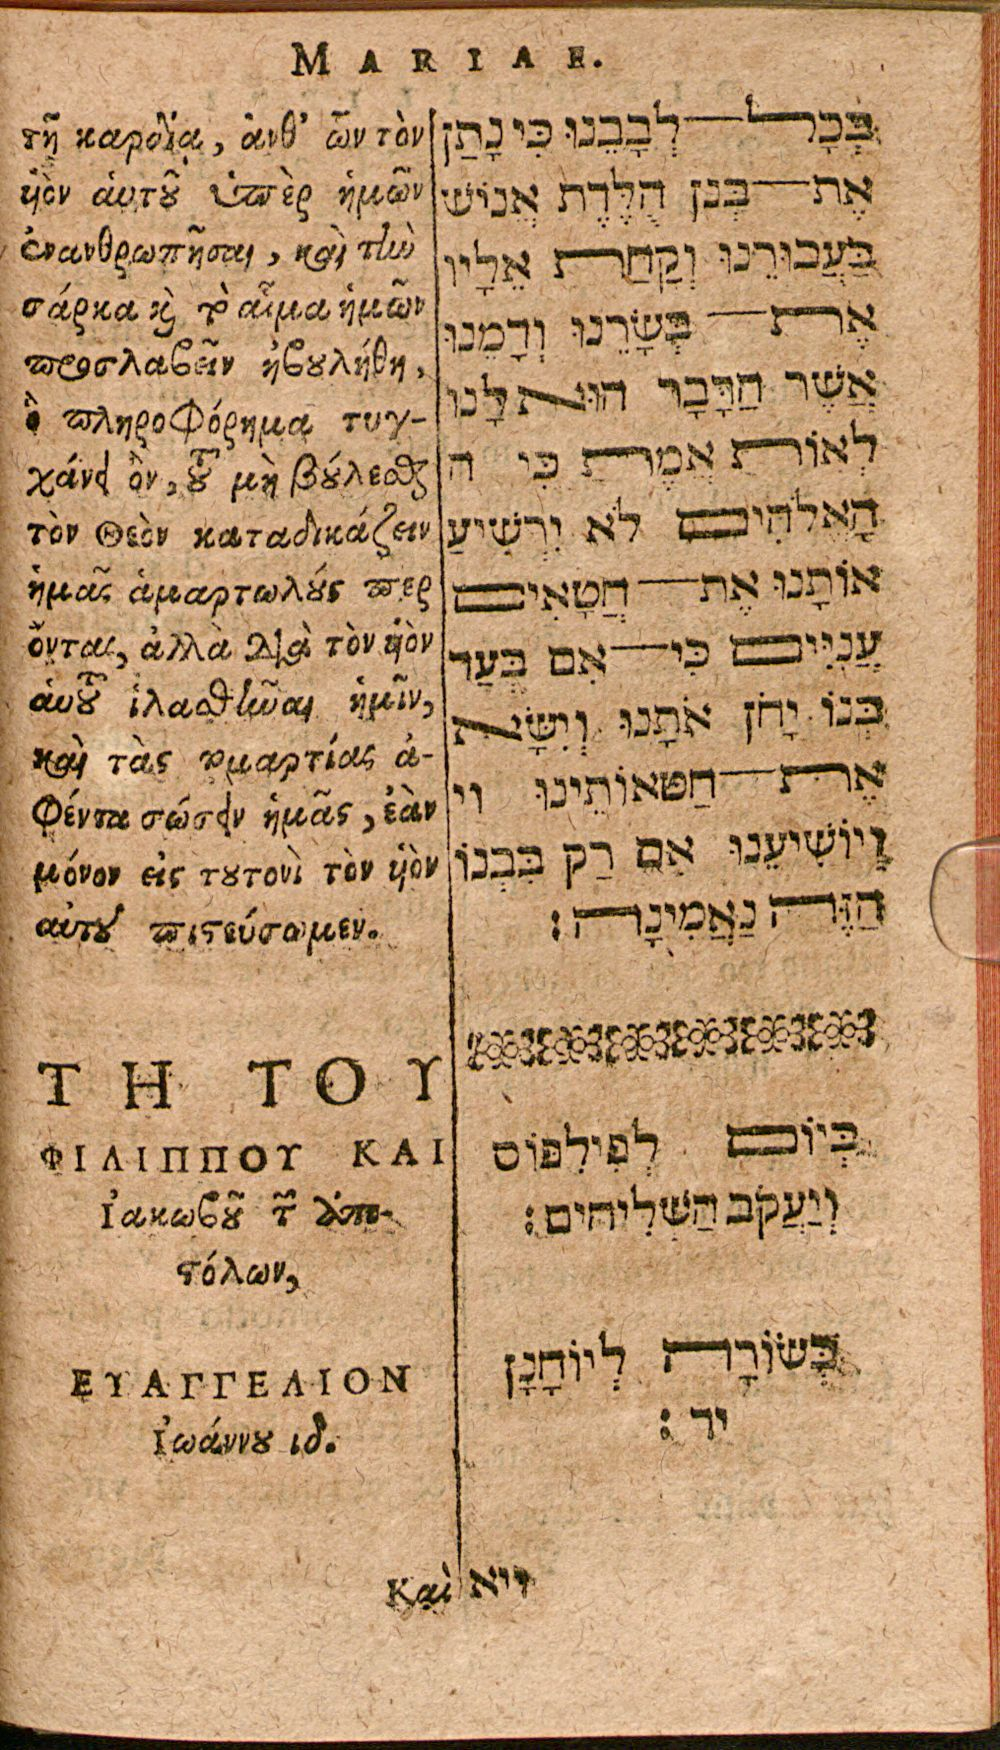 MARIAE.
τῇ καρδίᾳ, ἀνθ᾽ ὧν τὸν
ὑὸν ἀυτοῦ ὑπὲρ ἡμῶν
ἐνανθρωπῆσαι, καὶ τὴν
σάρκα καὶ τὸ αἷμα ἡμῶν
προσλαβεῖν ἠβουλήθη,
ὃ πληροφόρημα τυγ-
χάνει ὂν, τοῦ μὴ βούλεσθαι
τὸν Θεὸν καταδικάζειν
ἡμᾶς ἁμαρτωλούς περ
ὄντας, ἀλλὰ διὰ τὸν ὑὸν
ἀυτοῦ ἱλασθῆναι ἡμῖν,
καὶ τὰς ἁμαρτίας ἀ-
φέντα σώσειν ἡμᾶς, ἐὰν
μόνον εἰς τουτονὶ τὸν ὑὸν
αὐτοῦ πιστεύσωμεν.
ΤΗ ΤΟΥ
ΦΙΛΙΠΠΟΥ ΚΑΙ
Ἰακωβοῦ τῶν ἀπο-
στόλων,
ΕΥΑΓΓΕΛΙΟΝ
Ἰωάννου ιδ.
בְּכָל לְבָבֵנוּ כִּי נָתַן
אֶת בְּנוֹ הֻלֶּדֶת אֱנוֹשׁ
בַּעֲבוּרֵנוּ וְקַחַת אֵלָיו
אֶת בְּשָׂרֵנוּ וְדָמֵנוּ
אֲשֶׁר הַדָּבָר הוּא לָנוּ
לְאוֹת אֱמֶת כִּי ה
הָאֱלֹהִים לֹא יַרְשִׁיעַ
אוֹתָנוּ אֶת חֲטָאִים
עֲנִיִּים כִּי אִם בְּעַד
בְּנוֹ יָחֹן אֹתָנוּ וְיִשָּׂא
אֶת חַטּאוֹתֵינוּ וי
וְיוֹשִׁיעֵנוּ אִם רַק בִּבְנוֹ
הַזֶּה נַאֲמִינָה׃
בְּיוֹם לְפִילִפּוֹס
וְיַעֲקֹב הַשְּׁלִיחִים׃
בְּשׂוֹרָה לְיוֹחָנָן
יד׃
Καὶ ויא